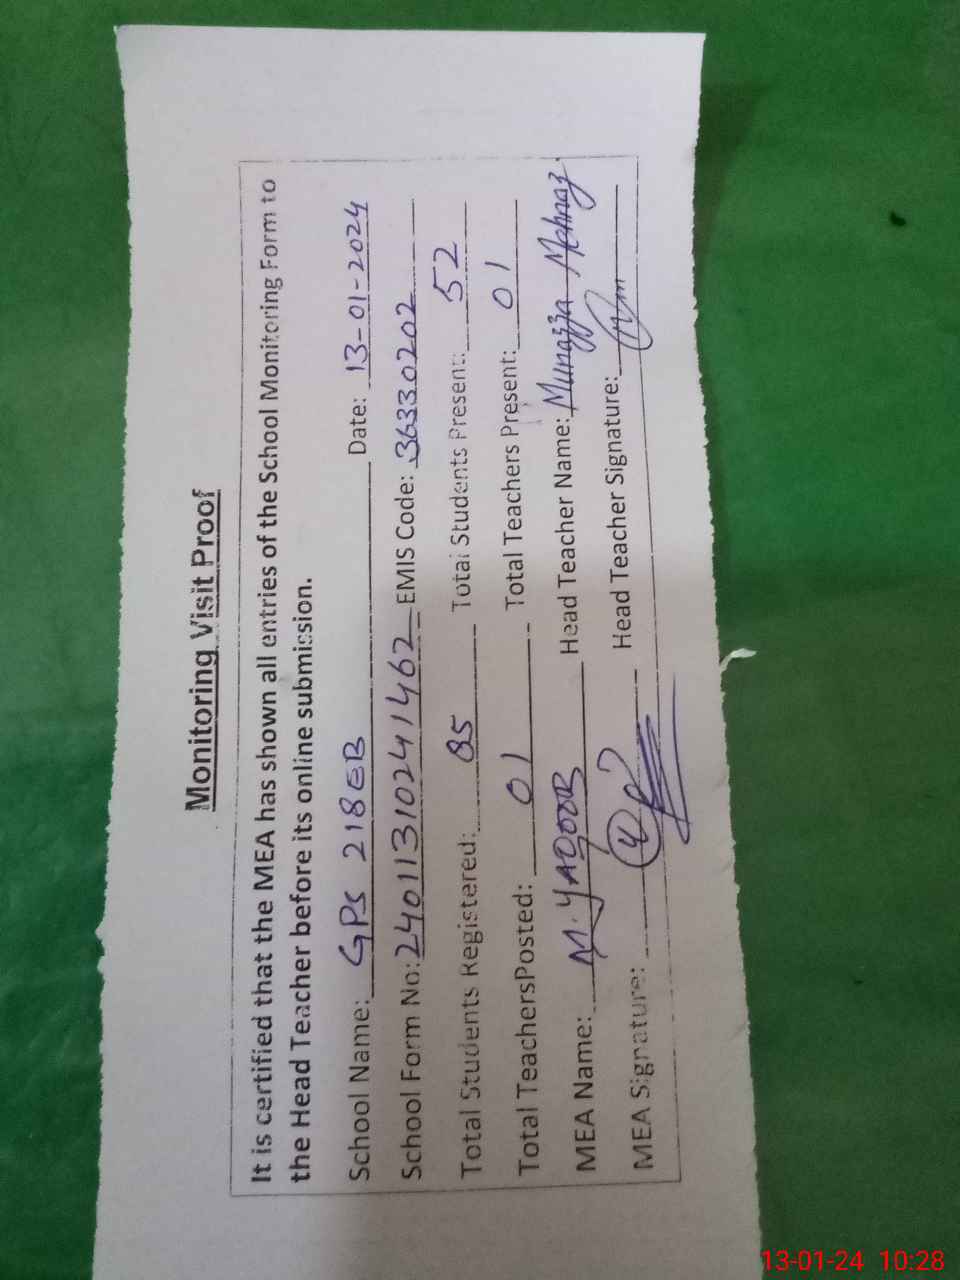 Monitoring Visit Proof
It is certified that the MEA has shown all entries of the School Monitoring Form to
the Head Teacher before its online submission.
School Name: GPS 218EB Date: 13-01-2024
School Form No: 24011310241462 EMIS Code: 36330202
Total Students Registered: 85 Total Students Present: 52
Total TeachersPosted: 01 Total Teachers Present: 01
MEA Name: M. YAQOOB Head Teacher Name: Munazza Mehnaz
MEA Signature: Head Teacher Signature:
13-01-24 10:28